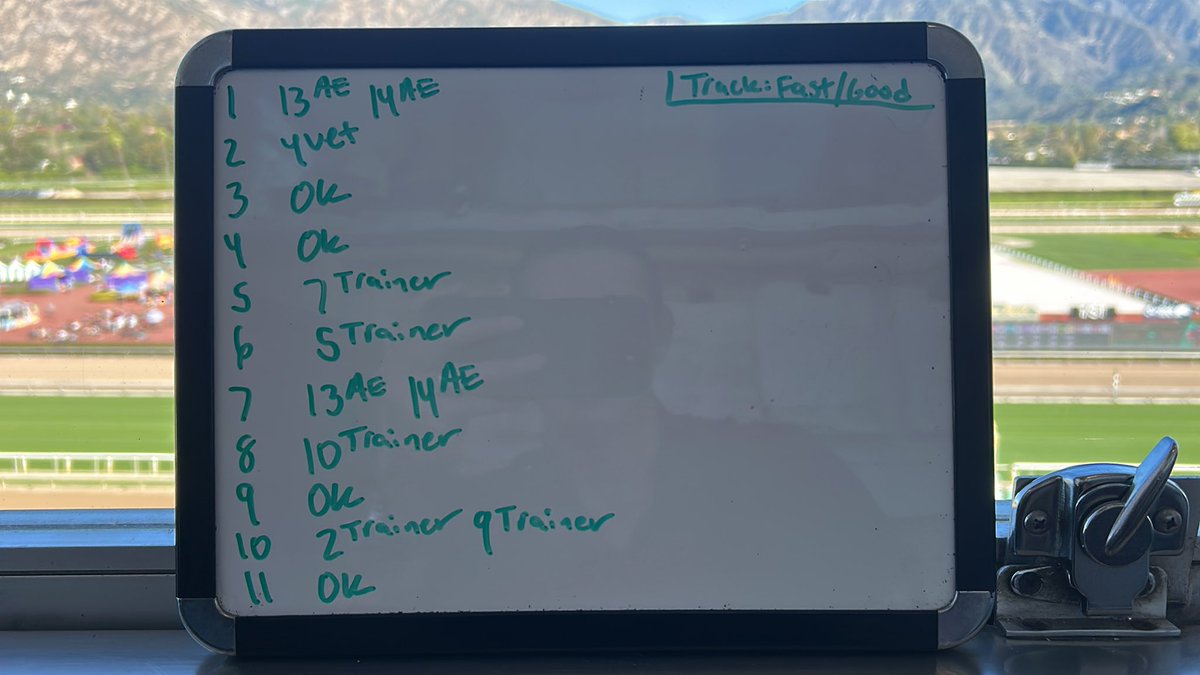 1 13 AE 14 AE
Track: Fast/Good
2 4 vet
3 Ok
4 Ok
5 7 Trainer
6 5 Trainer
7 13 AE 14 AE
8 10 Trainer
9 Ok
10 2 Trainer 9 Trainer
11 Ok